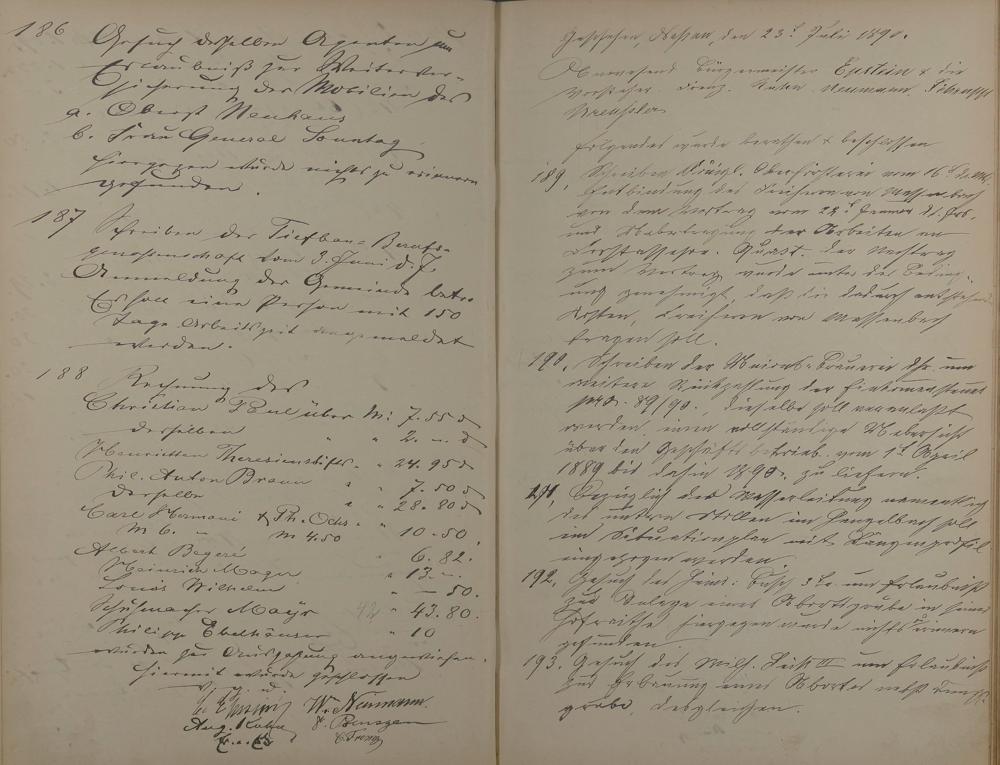 186 Gesuch desselben Agenten um
Erlaubniß zur Weiterver-
sicherung der Mobilien des
a. Oberst Neuhaus
b. Frau General Sonntag
Hiergegen wurde nichts zu erinnern
gefunden.
187 Schreiben der Tiefbau-Berufs-
genossenschaft vom 3. Juni d. J.
Anmeldung der Gemeinde betr.
Es soll eine Person mit 150
Tage Arbeitszeit angemeldet
werden.
188 Rechnung des
Christian Paul über M: 7.55
derselben " " 2.
Henrietten Theresienstifts " 24.95
Phil. Anton Braun " " 7.50
derselbe " " 28.80
Carl Hermani & Ph. Ochs " 10.50.
M 6. – M 4.50
Albert Begeré " 6.82.
Heinrich Mager " 13.–
Louis Wilhelm " – 50.
Schuhmacher Mayr " 43.80.
Philipp Ebelhäuser " 10
wurden zur Auszahlung angewiesen.
Hiermit wurde geschlossen
V. g. u.
W. Neumann
Aug.
Geschehen, den 23t Juli 1890.
Anwesend Bürgermeister & die
Vorsteher Neumann
Folgendes wurde berathen & beschlossen
189, Schreiben Königl. Oberförsterei vom 16t
Entbindung des Freiherrn von
von dem Vertrag vom 22t Januar d. Js.
und Uebertragung der Arbeiten an
Forstassessor Quast. Der Nachtrag
zum Vertrag wurde unter der Beding-
ung genehmigt, daß die dadurch entstehenden
Kosten, Freiherrn von
tragen soll.
190, Schreiben der Brauerei um
weitere Rückzahlung der Einkommensteuer
pro 89/90., dieselbe soll veranlaßt
werden, eine vollständige Uebersicht
über den Geschäftsbetrieb vom 1t April
1889 bis dahin 1890. zu liefern.
191, Bezüglich der Wasserleitung
der untere Stollen im soll
im Situationsplan mit Längenprofil
eingezogen werden.
192, Gesuch des um Erlaubniß
zur Anlage einer Abortsgrube in seiner
Hofraithe hiergegen wurde nichts zu erinnern
gefunden.
193. Gesuch des Wilh. III um Erlaubniß
zur Erbauung eines Abortes nebst
grube, desgleichen.